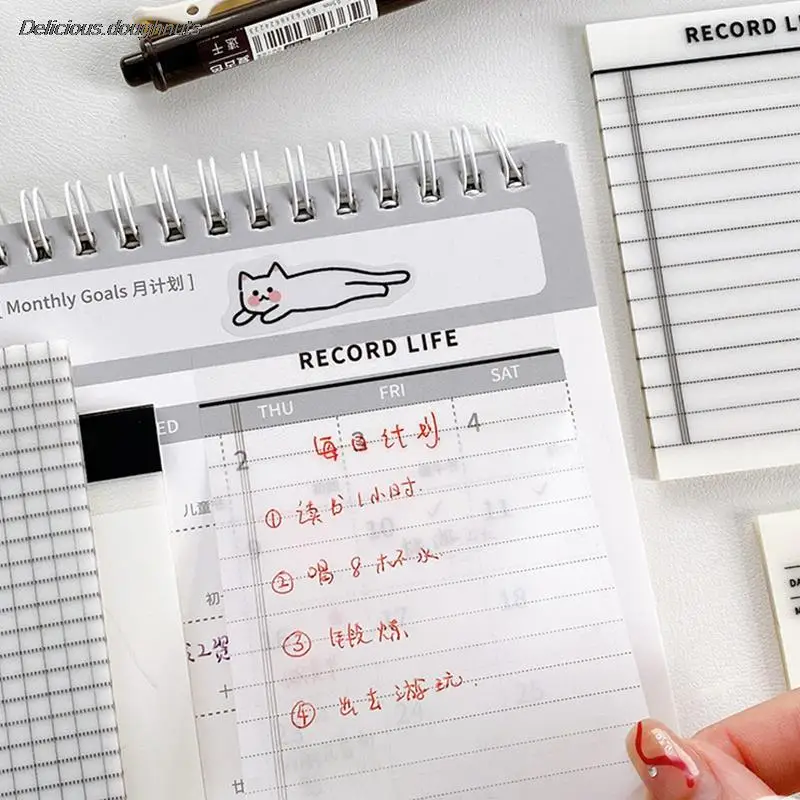 Delicious.doughnuts
速干
RECORD LI
[ Monthly Goals 月计划 ]
RECORD LIFE
ED THU FRI SAT
2 3 4
每日计划
① 读书1小时.
儿童
10 11
② 喝8杯水
初
18
③ 锻炼
工资
十
④ 出去游玩.
24 25
廿
DA
M